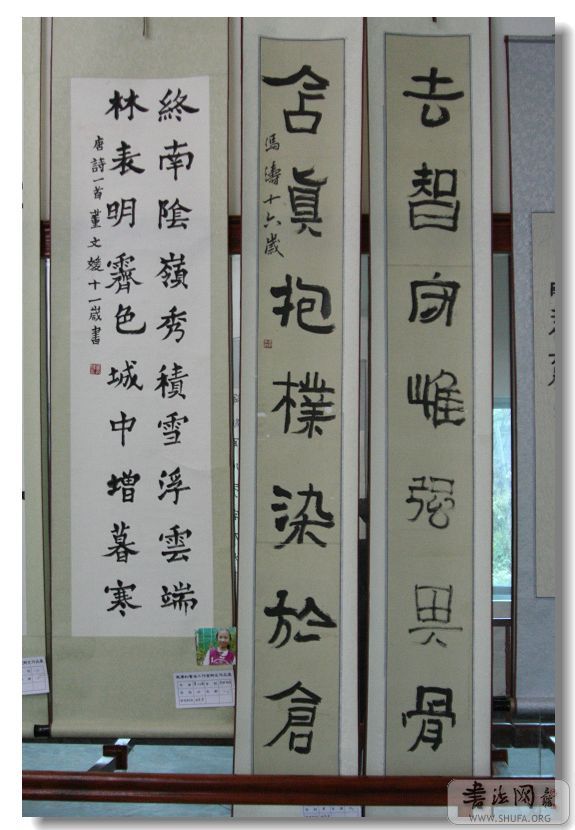 去智守强骨
含真抱樸染於倉
馮濤十六歲
終南陰嶺秀積雪浮雲端
林表明霽色城中增暮寒
唐詩一首董文媛十一歲書
書法网
WWW.SHUFA.ORG